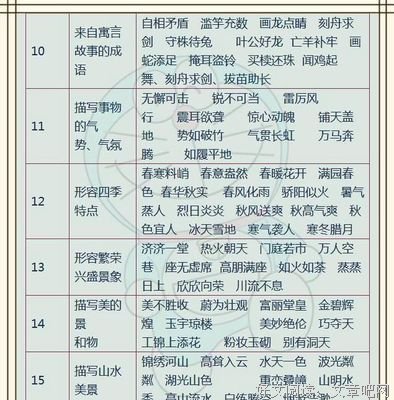 自相矛盾 滥竽充数 画龙点睛 刻舟求
10 来自寓言故事的成语 剑 守株待兔 叶公好龙 亡羊补牢 画
蛇添足 掩耳盗铃 买椟还珠 闻鸡起
舞、刻舟求剑、拔苗助长
无懈可击 锐不可当 雷厉风
11 描写事物的气势、气氛 行 震耳欲聋 惊心动魄 铺天盖
地 势如破竹 气贯长虹 万马奔
腾 如履平地
春寒料峭 春意盎然 春暖花开 满园春
12 形容四季特点 色 春华秋实 春风化雨 骄阳似火 暑气
蒸人 烈日炎炎 秋风送爽 秋高气爽 秋
色宜人 冰天雪地 寒气袭人 寒冬腊月
济济一堂 热火朝天 门庭若市 万人空
13 形容繁荣兴盛景象 巷 座无虚席 高朋满座 如火如荼 蒸蒸
日上 欣欣向荣 川流不息
美不胜收 蔚为壮观 富丽堂皇 金碧辉
14 描写美的景和物 煌 玉宇琼楼 美妙绝伦 巧夺天
工锦上添花 粉妆玉砌 别有洞天
锦绣河山 高耸入云 水天一色 波光粼
15 描写山水美景 粼 湖光山色 重峦叠嶂 山明水
好文阅读，文章吧网